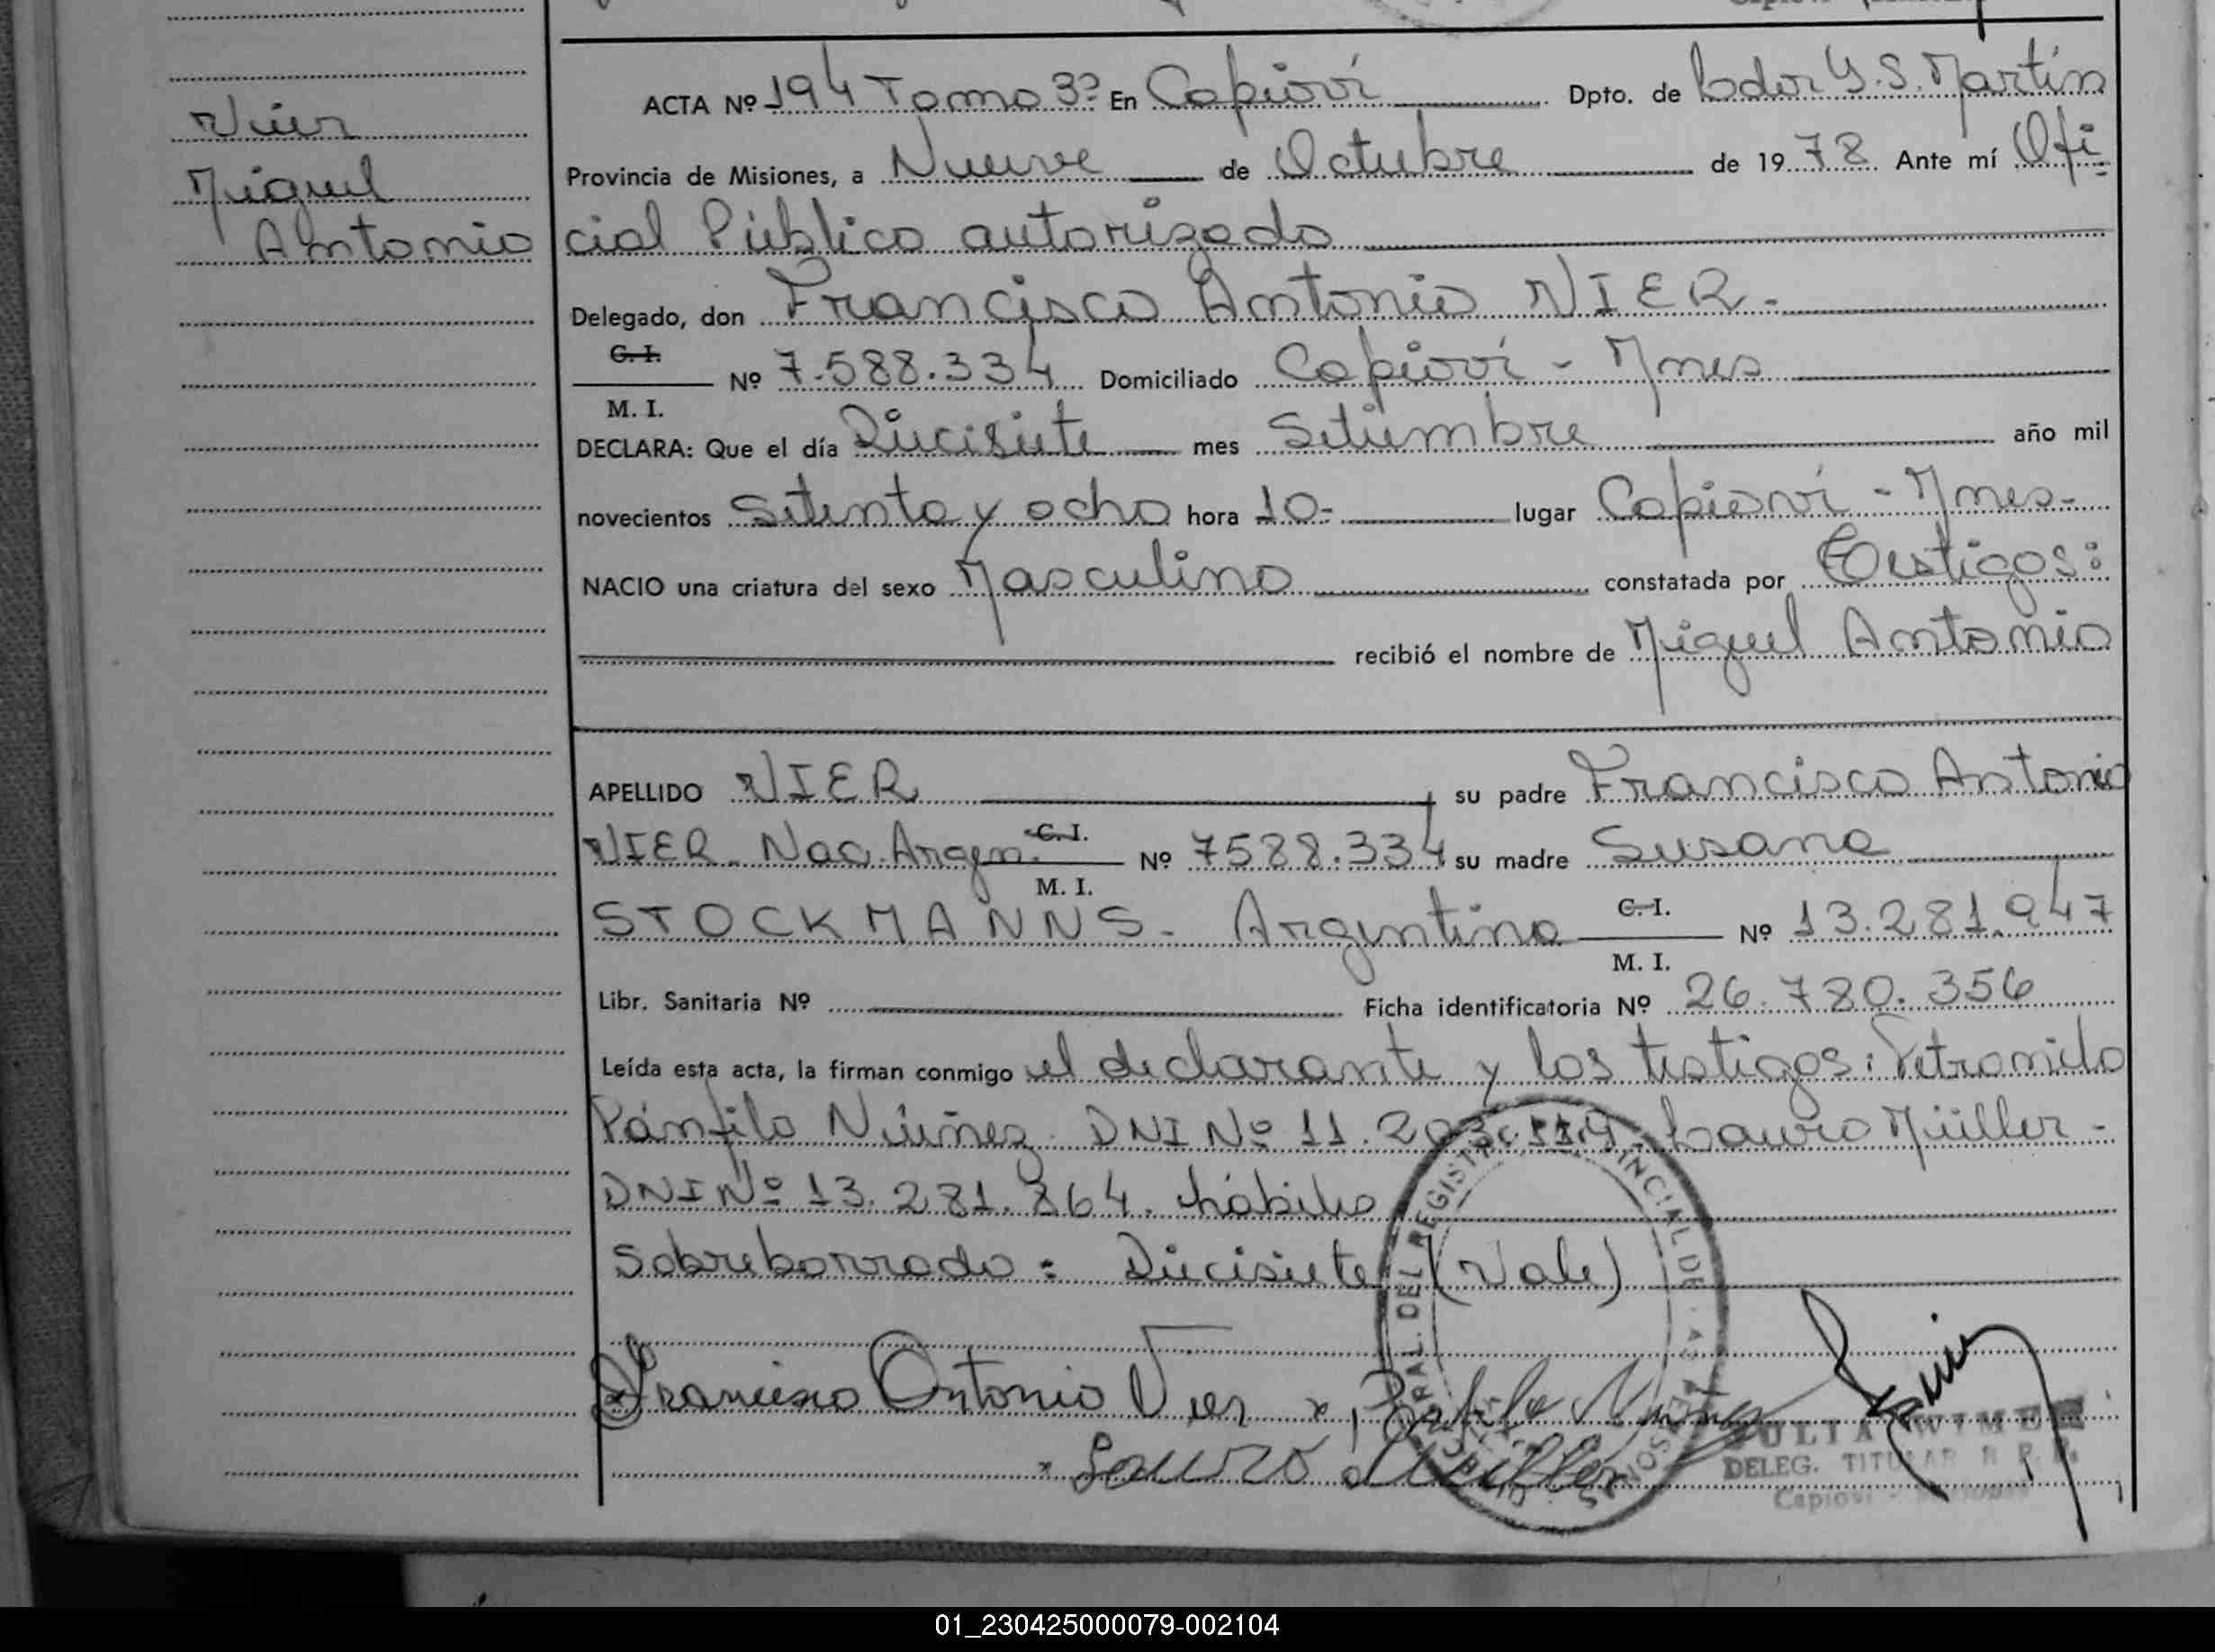 Vier
Miguel
Antonio
ACTA Nº 194 Tomo 3º En Capioví Dpto. de Lbdor G.S. Martín
Provincia de Misiones, a Nueve de Octubre de 1978 Ante mí Ofi
cial Público autorizado
Delegado, don Francisco Antonio VIER.-
C. I.
Nº 7.588.334 Domiciliado Capioví - Mnes
M. I.
DECLARA: Que el día Diecisiete mes Setiembre año mil
novecientos Setenta y ocho hora 10- lugar Capioví - Mnes-
NACIO una criatura del sexo Masculino constatada por Testigos:
recibió el nombre de Miguel Antonio
APELLIDO VIER su padre Francisco Antonio
VIER - Nac. Argen. C. I. Nº 7588.334 su madre Susana
M. I.
STOCKMANNS - Argentina C. I. Nº 13.281.947
M. I.
Libr. Sanitaria Nº Ficha identificatoria Nº 26.780.356
Leída esta acta, la firman conmigo el declarante y los testigos: Petronilo
Pánfilo Núñez. DNI Nº 11.203.119. Lauro Müller -
DNI Nº 13.281.864. hábiles
Sobreborrado: Diecisiete (Vale)
Francisco Antonio Vier x Pánfilo Nuñez
x Lauro Müller
JULIA WIMER
DELEG. TITULAR R. P.
Capioví - Misiones
01_230425000079-002104